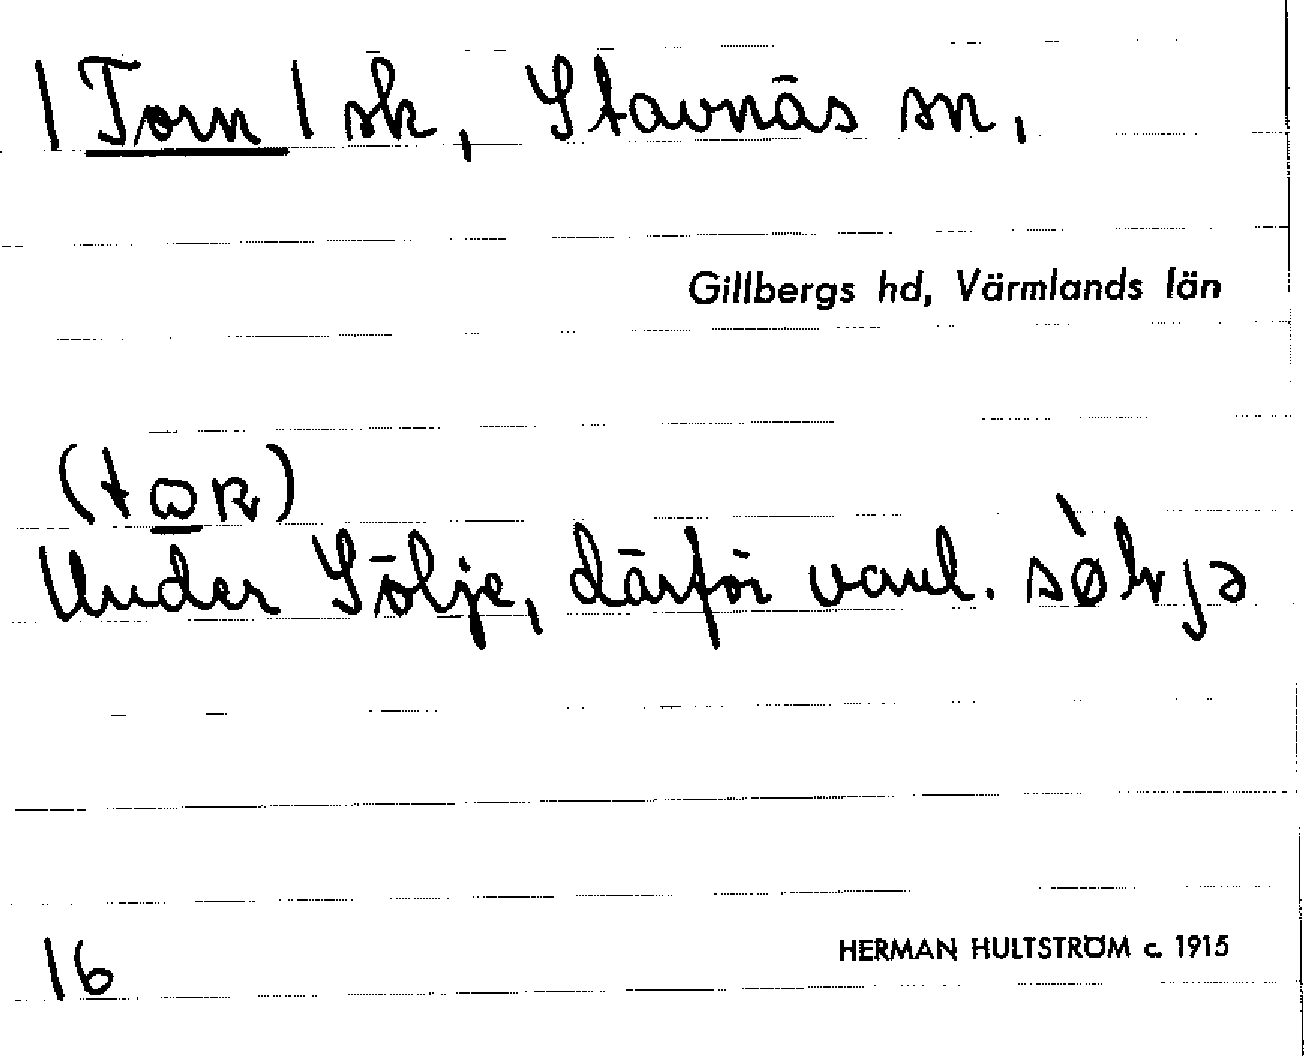 | Torn | sk, Stavnäs sn,
Gillbergs hd, Värmlands län
Under Sölje, därför vanl.
16
HERMAN HULTSTRÖM c. 1915